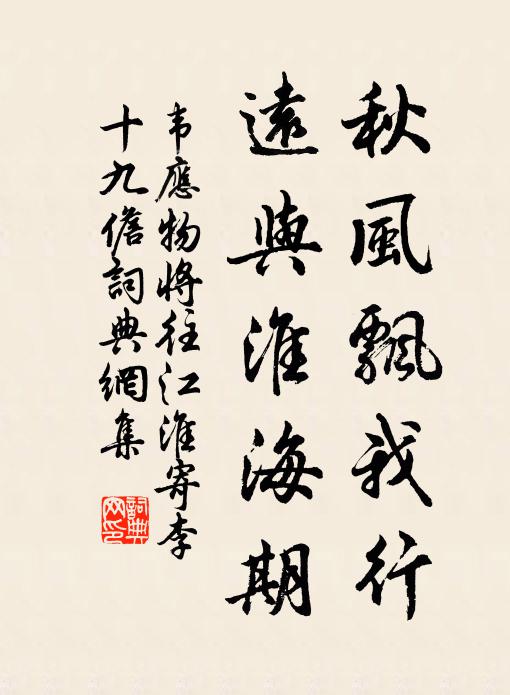 秋風飄我行
遠與淮海期
韦應物將往江淮寄李
十九儋詞典網集
詞典
网印